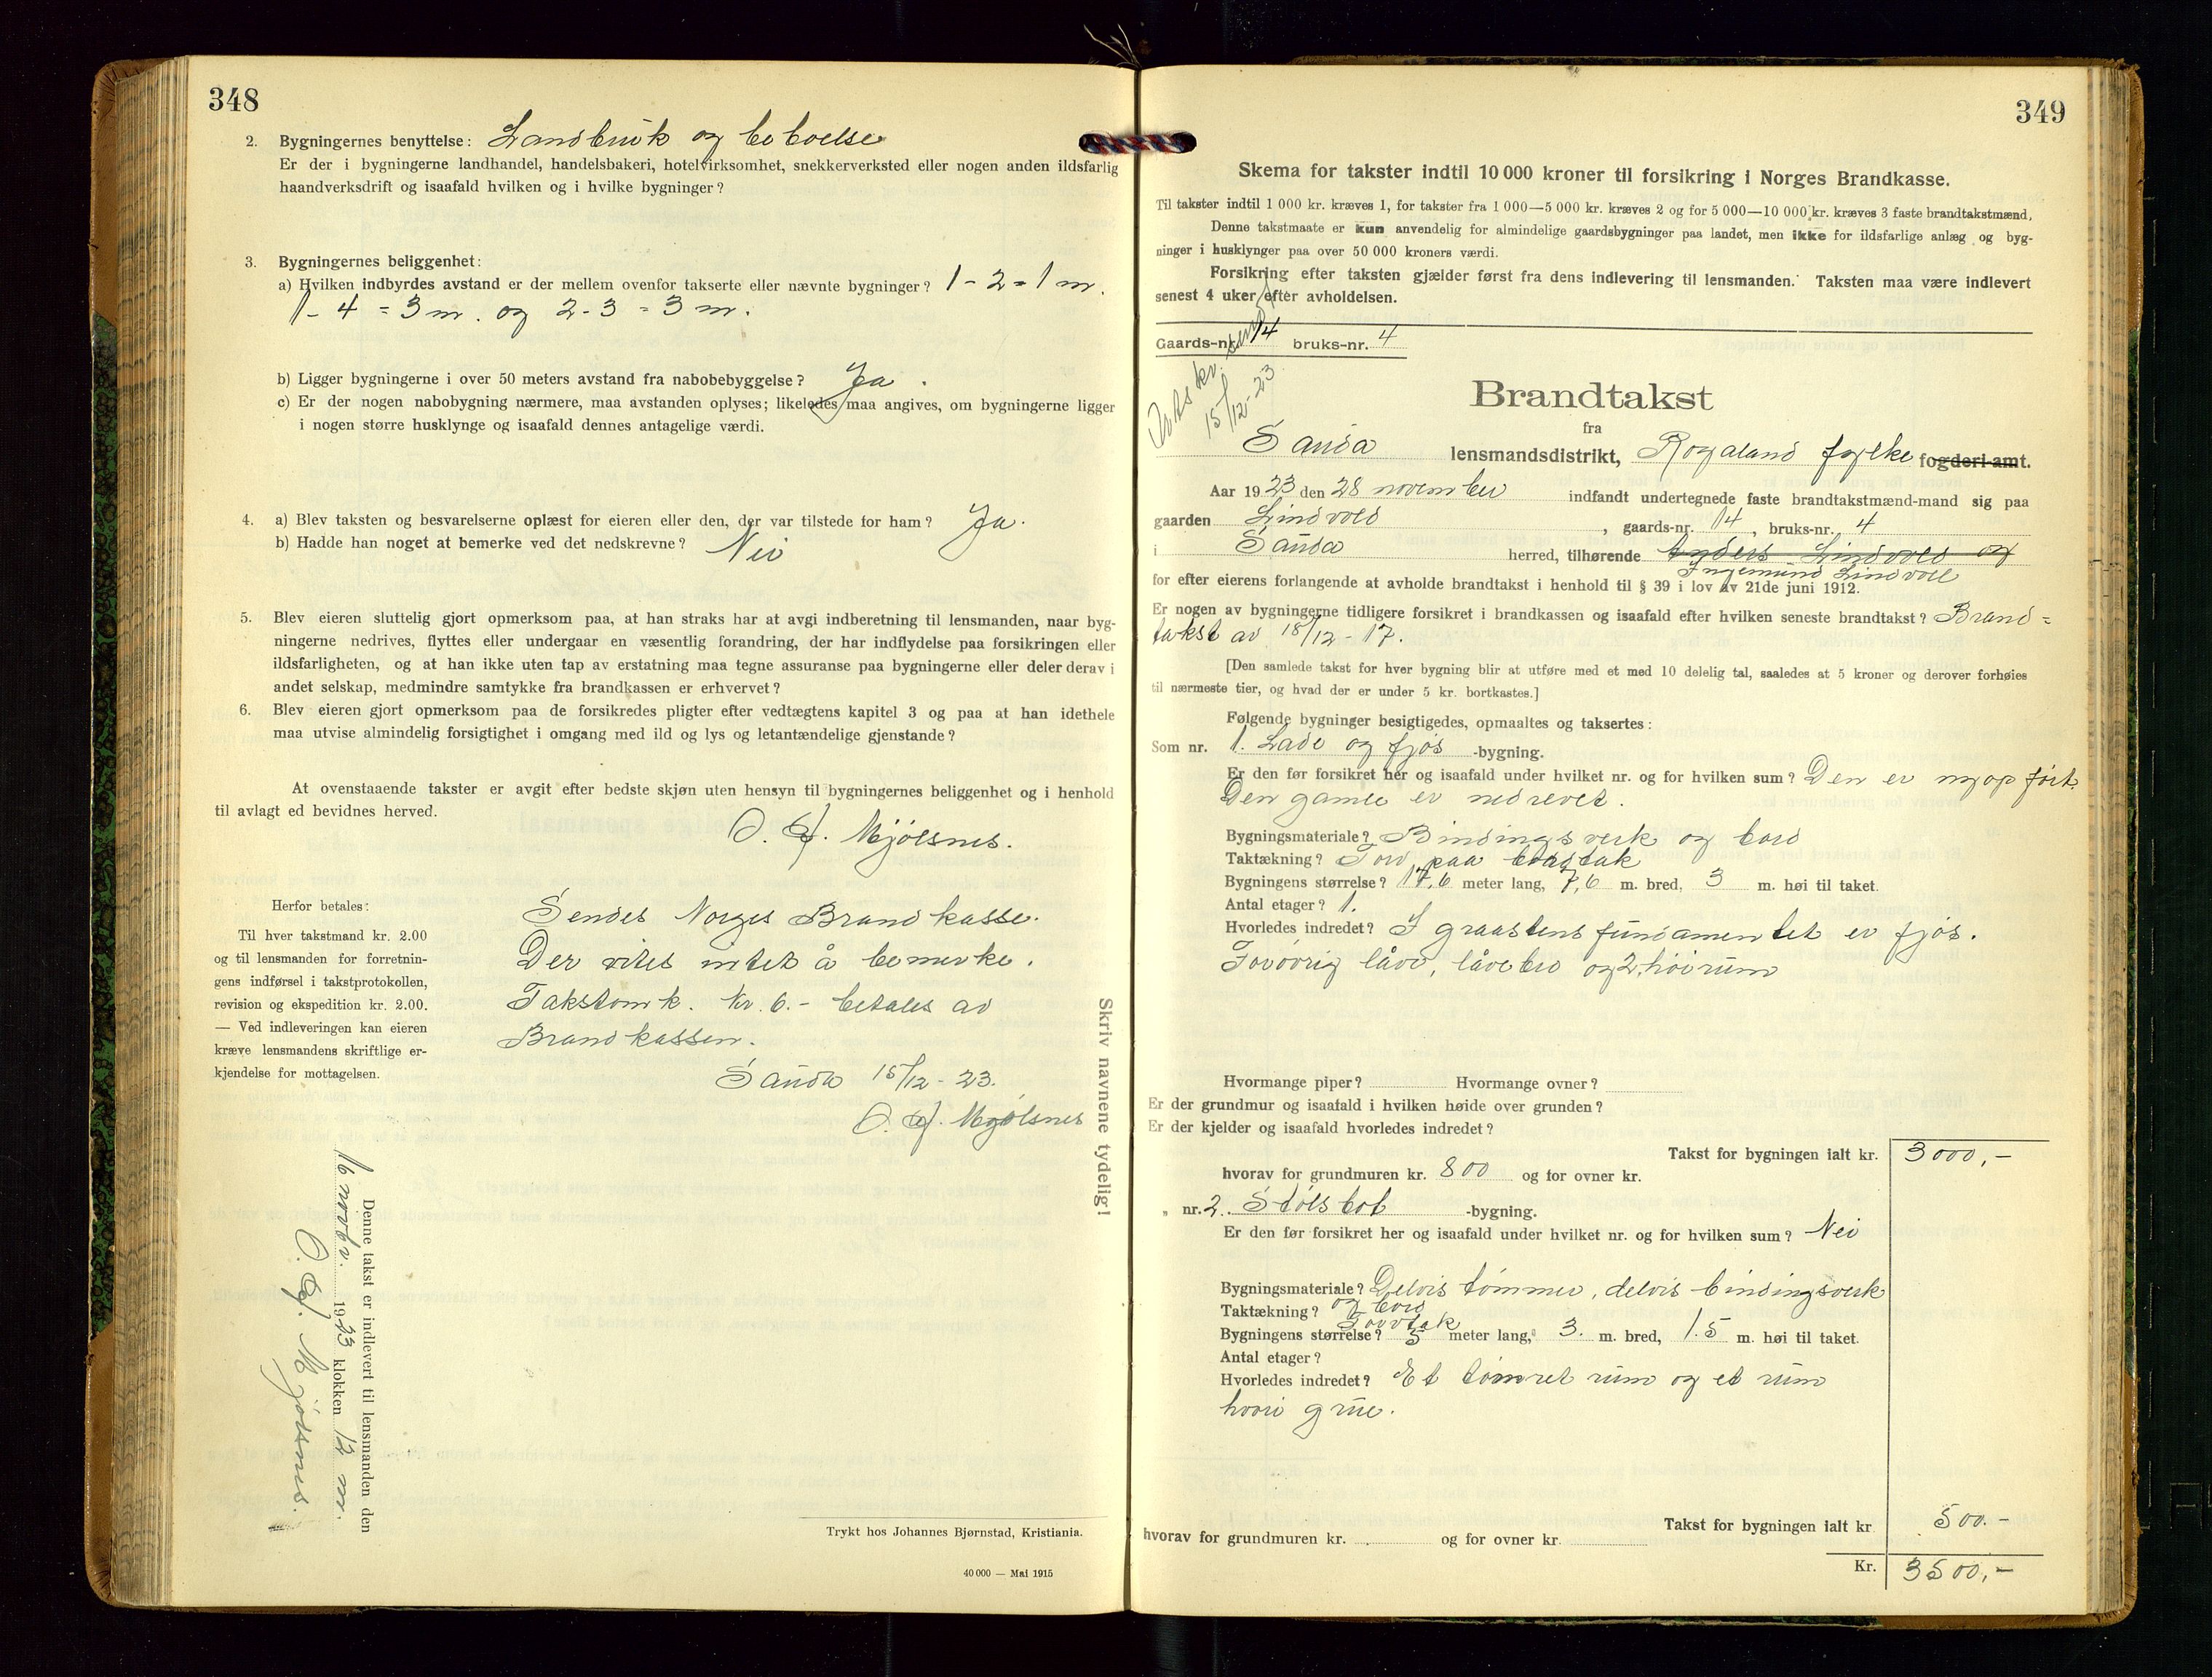 348
2. Bygningernes benyttelse: Landbruk og beboelse
Er der i bygningerne landhandel, handelsbakeri, hotelvirksomhet, snekkerverksted eller nogen anden ildsfarlig
haandverksdrift og isaafald hvilken og i hvilke bygninger?
3. Bygningernes beliggenhet:
a) Hvilken indbyrdes avstand er der mellem ovenfor takserte eller nævnte bygninger? 1 - 2 = 1 m.
1 - 4 = 3 m. og 2 - 3 = 3 m.
b) Ligger bygningerne i over 50 meters avstand fra nabobebyggelse? Ja.
c) Er der nogen nabobygning nærmere, maa avstanden oplyses; likeledes maa angives, om bygningerne ligger
i nogen større husklynge og isaafald dennes antagelige værdi.
4. a) Blev taksten og besvarelserne oplæst for eieren eller den, der var tilstede for ham? Ja.
b) Hadde han noget at bemerke ved det nedskrevne? Nei
5. Blev eieren sluttelig gjort opmerksom paa, at han straks har at avgi indberetning til lensmanden, naar byg-
ningerne nedrives, flyttes eller undergaar en væsentlig forandring, der har indflydelse paa forsikringen eller
ildsfarligheten, og at han ikke uten tap av erstatning maa tegne assuranse paa bygningerne eller deler derav i
andet selskap, medmindre samtykke fra brandkassen er erhvervet?
6. Blev eieren gjort opmerksom paa de forsikredes pligter efter vedtægtens kapitel 3 og paa at han idethele
maa utvise almindelig forsigtighet i omgang med ild og lys og letantændelige gjenstande?
At ovenstaaende takster er avgit efter bedste skjøn uten hensyn til bygningernes beliggenhet og i henhold
til avlagt ed bevidnes herved.
Mjølsnes.
Herfor betales:
Til hver takstmand kr. 2.00
og til lensmanden for forretnin-
gens indførsel i takstprotokollen,
revision og ekspedition kr. 2.00.
— Ved indleveringen kan eieren
kræve lensmandens skriftlige er-
kjendelse for mottagelsen.
Sendes Norges Brandkasse.
Der vites intet å bemerke.
Takstomk. kr. 6.- betales av
Brandkassen.
Sauda 15/12 - 23.
Mjølsnes
Skriv navnene tydelig!
Denne takst er indlevert til lensmanden den
16 novbr. 1923 klokken 12 m.
Mjølsnes.
Trykt hos Johannes Bjørnstad, Kristiania.
40 000 — Mai 1915
349
Skema for takster indtil 10 000 kroner til forsikring i Norges Brandkasse.
Til takster indtil 1 000 kr. kræves 1, for takster fra 1 000—5 000 kr. kræves 2 og for 5 000—10 000 kr. kræves 3 faste brandtakstmænd.
Denne takstmaate er kun anvendelig for almindelige gaardsbygninger paa landet, men ikke for ildsfarlige anlæg og byg-
ninger i husklynger paa over 50 000 kroners værdi.
Forsikring efter taksten gjælder først fra dens indlevering til lensmanden. Taksten maa være indlevert
senest 4 uker efter avholdelsen.
Gaards-nr. 14 bruks-nr. 4
Utskr. send
15/12-23
Brandtakst
fra
Sauda lensmandsdistrikt, Rogaland fylke fogderi-amt.
Aar 1923 den 28 november indfandt undertegnede faste brandtakstmænd-mand sig paa
gaarden Lindvold, gaards-nr. 14, bruks-nr. 4
i Sauda herred, tilhørende Anders Lindvold og
Ingemund Lindvoll
for efter eierens forlangende at avholde brandtakst i henhold til § 39 i lov av 21de juni 1912.
Er nogen av bygningerne tidligere forsikret i brandkassen og isaafald efter hvilken seneste brandtakst? Brand=
takst av 18/12 - 17.
[Den samlede takst for hver bygning blir at utføre med et med 10 delelig tal, saaledes at 5 kroner og derover forhøies
til nærmeste tier, og hvad der er under 5 kr. bortkastes.]
Følgende bygninger besigtigedes, opmaaltes og taksertes:
Som nr. 1. Lade og fjøs -bygning.
Er den før forsikret her og isaafald under hvilket nr. og for hvilken sum? Den er nyopført.
Den gamle er nedrevet.
Bygningsmateriale? Bindingsverk og bord
Taktækning? Torv paa bordtak
Bygningens størrelse? 17,6 meter lang, 7,6 m. bred, 3 m. høi til taket.
Antal etager? 1.
Hvorledes indredet? I graastensfundamentet er fjøs.
Forøvrig låve, låvebro og 2 høirum
Hvormange piper? Hvormange ovner?
Er der grundmur og isaafald i hvilken høide over grunden?
Er der kjelder og isaafald hvorledes indredet?
Takst for bygningen ialt kr. 3000,-
hvorav for grundmuren kr. 800 og for ovner kr.
„ nr. 2. Stølsbol -bygning.
Er den før forsikret her og isaafald under hvilket nr. og for hvilken sum? Nei
Bygningsmateriale? Delvis tømmer, delvis bindingsverk
og bord
Taktækning? Torvtak
Bygningens størrelse? 5 meter lang, 3. m. bred, 1.5 m. høi til taket.
Antal etager?
Hvorledes indredet? Et tømret rum og et rum
hvori grue.
Takst for bygningen ialt kr 500.-
hvorav for grundmuren kr. og for ovner kr.
Kr. 3500,-